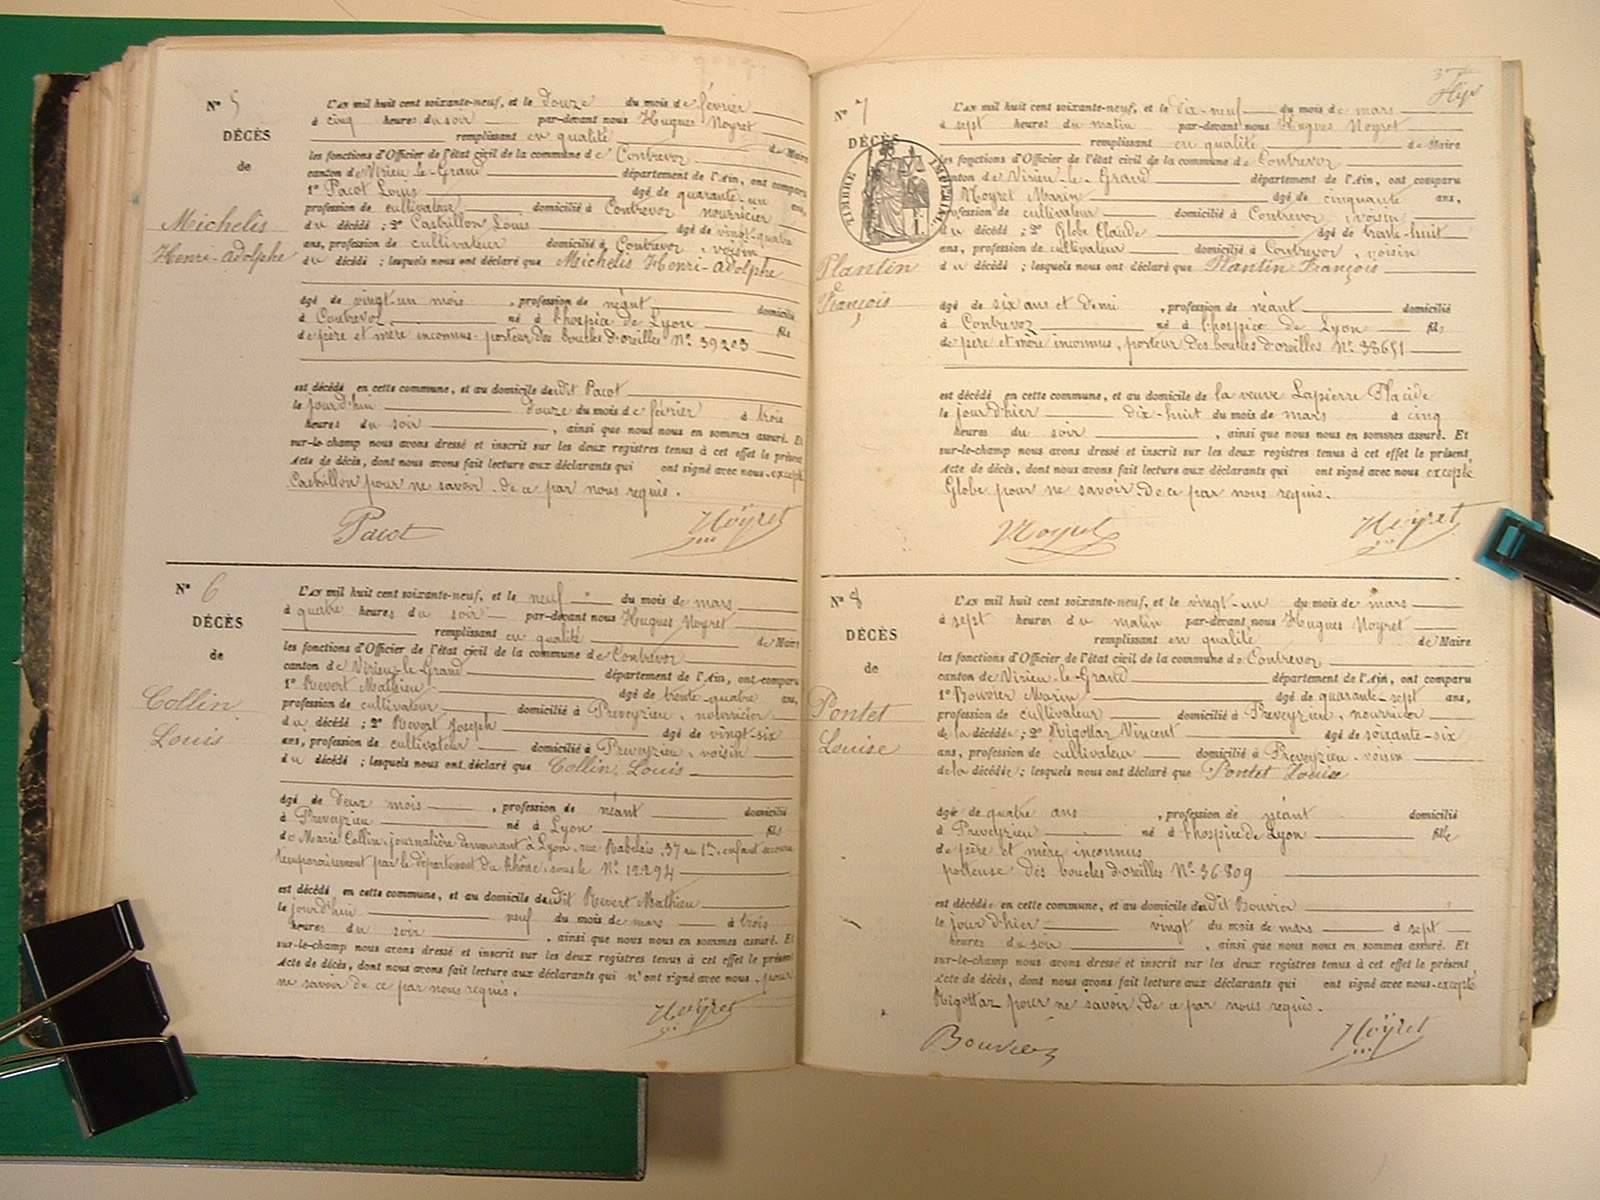 N° 5
DÉCÈS
de
Michelis
Henri-Adolphe
L'AN mil huit cent soixante-neuf, et le douze du mois de février
à cinq heures du soir par-devant nous Hugues Noyret
remplissant en qualité de Maire
les fonctions d'Officier de l'état civil de la commune de Contrevoz
canton de Virieu-le-Grand département de l'Ain, ont comparu
1° Pacot Louis âgé de quarante-un ans,
profession de cultivateur domicilié à Contrevoz nourricier
du décédé ; 2° Castrillon Louis âgé de vingt-quatre
ans, profession de cultivateur domicilié à Contrevoz, voisin
du décédé ; lesquels nous ont déclaré que Michelis Henri-Adolphe
âgé de vingt-un mois, profession de néant domicilié
à Contrevoz né à l'hospice de Lyon fils
de père et mère inconnus porteur des boucles d'oreilles N° 39203
est décédé en cette commune, et au domicile dudit Pacot
le jourd'hui douze du mois de février à trois
heures du soir, ainsi que nous nous en sommes assuré. Et
sur-le-champ nous avons dressé et inscrit sur les deux registres tenus à cet effet le présent
Acte de décès, dont nous avons fait lecture aux déclarants qui ont signé avec nous excepté
Castrillon pour ne savoir de ce par nous requis.
Pacot Noÿret
N° 6
DÉCÈS
de
Collin
Louis
L'AN mil huit cent soixante-neuf, et le neuf du mois de mars
à quatre heures du soir par-devant nous Hugues Noyret
remplissant en qualité de Maire
les fonctions d'Officier de l'état civil de la commune de Contrevoz
canton de Virieu-le-Grand département de l'Ain, ont comparu
1° Revert Mathieu âgé de trente-quatre ans,
profession de cultivateur domicilié à Preveyzieu, nourricier
du décédé ; 2° Revert Joseph âgé de vingt-six
ans, profession de cultivateur domicilié à Preveyzieu, voisin
du décédé ; lesquels nous ont déclaré que Collin Louis
âgé de deux mois, profession de néant domicilié
à Preveyzieu né à Lyon fils
de Marie Collin, journalière demeurant à Lyon, rue Rabelais, 37 au 1er, enfant secouru
temporairement par le département du Rhône, sous le N° 12294
est décédé en cette commune, et au domicile dudit Revert Mathieu
le jourd'hui neuf du mois de mars à trois
heures du soir, ainsi que nous nous en sommes assuré. Et
sur-le-champ nous avons dressé et inscrit sur les deux registres tenus à cet effet le présent
Acte de décès, dont nous avons fait lecture aux déclarants qui n'ont signé avec nous, pour
ne savoir de ce par nous requis.
Noÿret
N° 7
DÉCÈS
TIMBRE IMPÉRIAL
Plantin
François
L'AN mil huit cent soixante-neuf, et le dix-neuf du mois de mars
à sept heures du matin par-devant nous Hugues Noyret
remplissant en qualité de Maire
les fonctions d'Officier de l'état civil de la commune de Contrevoz
canton de Virieu-le-Grand département de l'Ain, ont comparu
Noyret Marin âgé de cinquante ans,
profession de cultivateur domicilié à Contrevoz, voisin
du décédé ; 2° Globe Claude âgé de trente-huit
ans, profession de cultivateur domicilié à Contrevoz, voisin
du décédé ; lesquels nous ont déclaré que Plantin François
âgé de six ans et demi, profession de néant domicilié
à Contrevoz né à l'hospice de Lyon fils
de père et mère inconnus, porteur des boucles d'oreilles N° 38651
est décédé en cette commune, et au domicile de la veuve Lapierre Placide
le jour d'hier dix-huit du mois de mars à cinq
heures du soir, ainsi que nous nous en sommes assuré. Et
sur-le-champ nous avons dressé et inscrit sur les deux registres tenus à cet effet le présent
Acte de décès, dont nous avons fait lecture aux déclarants qui ont signé avec nous excepté
Globe pour ne savoir de ce par nous requis.
Noyret Noÿret
N° 8
DÉCÈS
de
Pontet
Louise
L'AN mil huit cent soixante-neuf, et le vingt-un du mois de mars
à sept heures du matin par-devant nous Hugues Noyret
remplissant en qualité de Maire
les fonctions d'Officier de l'état civil de la commune de Contrevoz
canton de Virieu-le-Grand département de l'Ain, ont comparu
1° Bouvier Marin âgé de quarante-sept ans,
profession de cultivateur domicilié à Preveyzieu, nourricier
de la décédée ; 2° Rigottaz Vincent âgé de soixante-six
ans, profession de cultivateur domicilié à Preveyzieu voisin
de la décédée ; lesquels nous ont déclaré que Pontet Louise
âgée de quatre ans, profession de néant domicilié
à Preveyzieu né à l'hospice de Lyon fille
de père et mère inconnus
porteuse des boucles d'oreilles N° 36809
est décédée en cette commune, et au domicile dudit Bouvier
le jour d'hier vingt du mois de mars à sept
heures du soir, ainsi que nous nous en sommes assuré. Et
sur-le-champ nous avons dressé et inscrit sur les deux registres tenus à cet effet le présent
Acte de décès, dont nous avons fait lecture aux déclarants qui ont signé avec nous excepté
Rigottaz pour ne savoir de ce par nous requis.
Bouvier Noÿret